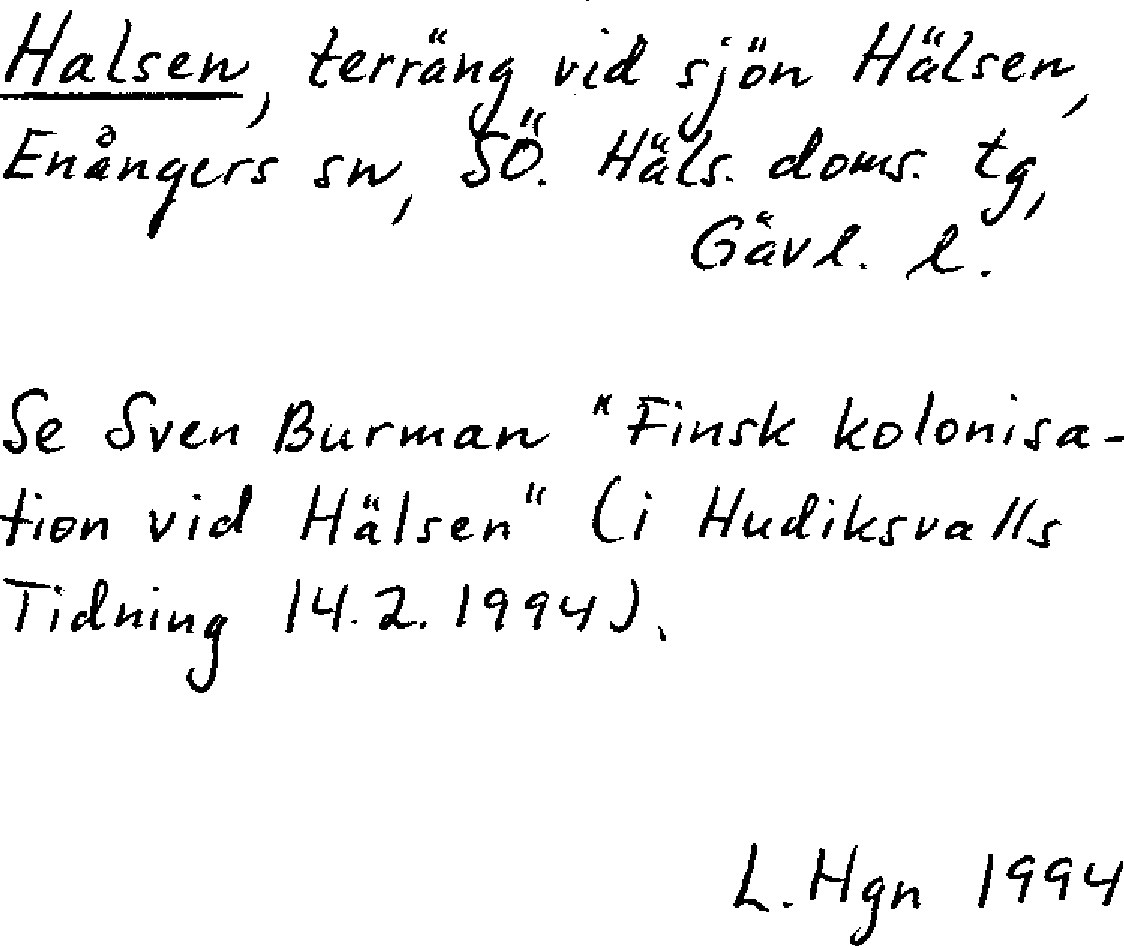 Halsen, terräng vid sjön Hälsen,
Enångers sn, SÖ. Häls. doms. tg,
Gävl. l.
Se Sven Burman "Finsk kolonisa-
tion vid Hälsen" (i Hudiksvalls
Tidning 14.2.1994).
L. Hgn 1994